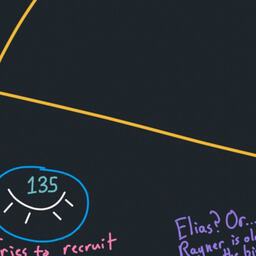 135
tries to recruit
Elias? Or...
Rayner is ol
the bi